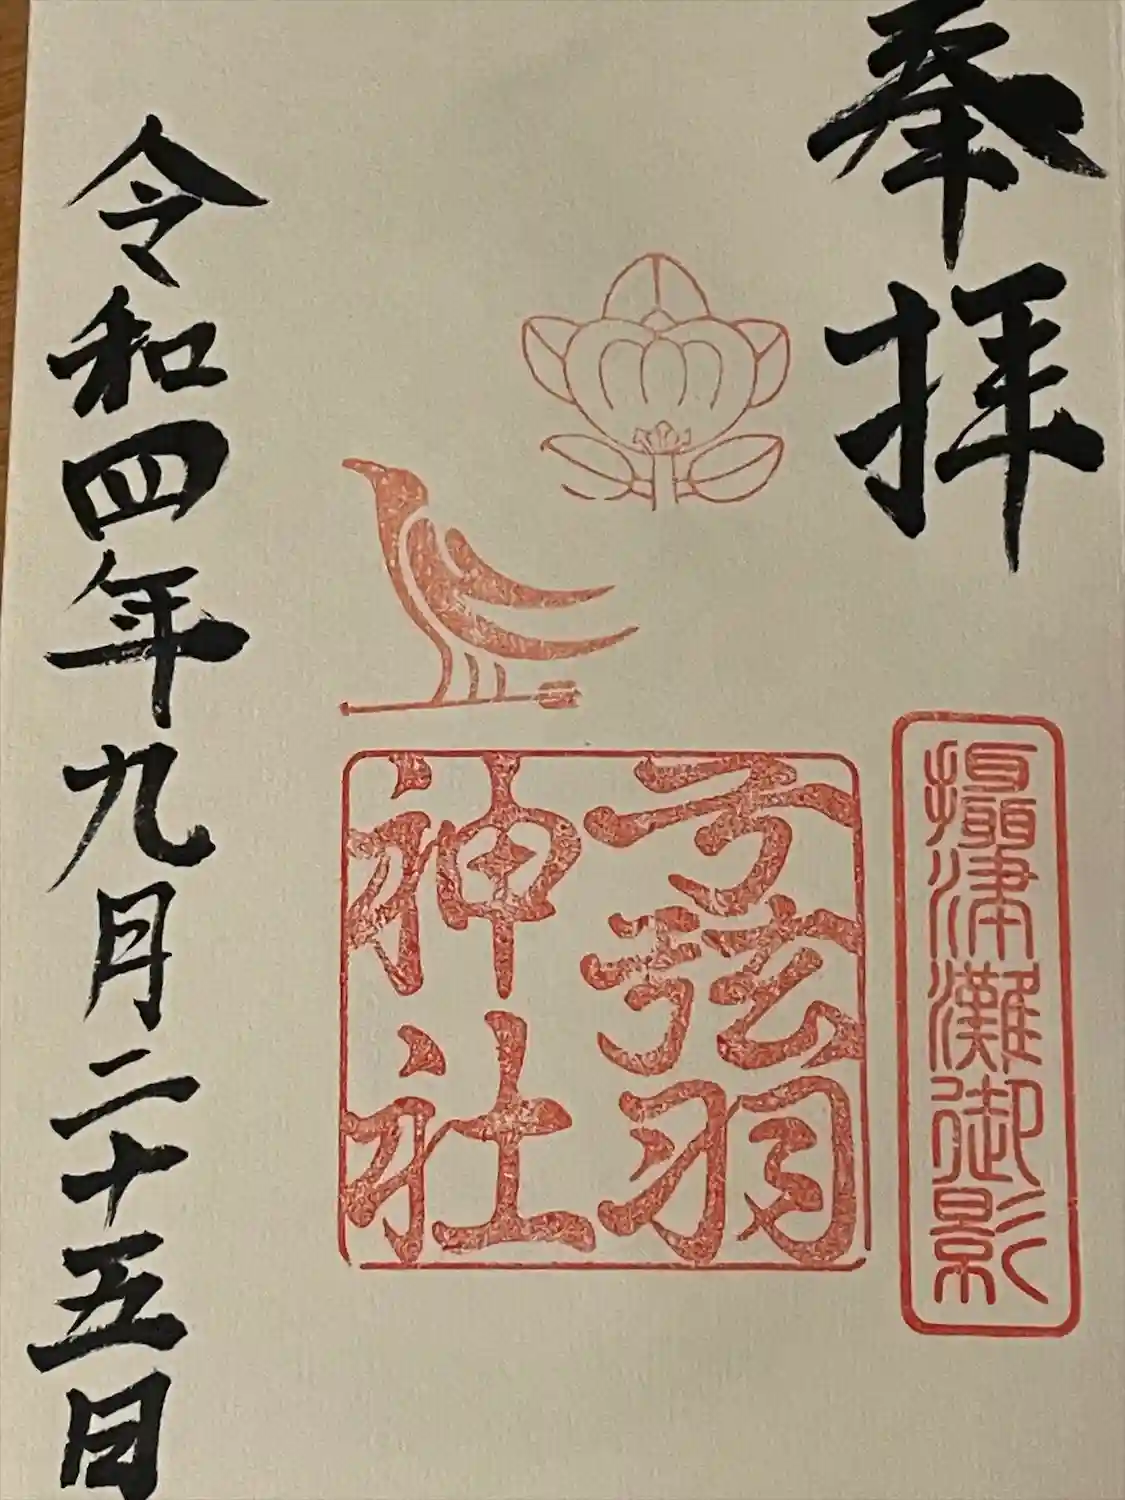 奉拝
攝津灘御影
弓弦羽
神社
令和四年九月二十五日